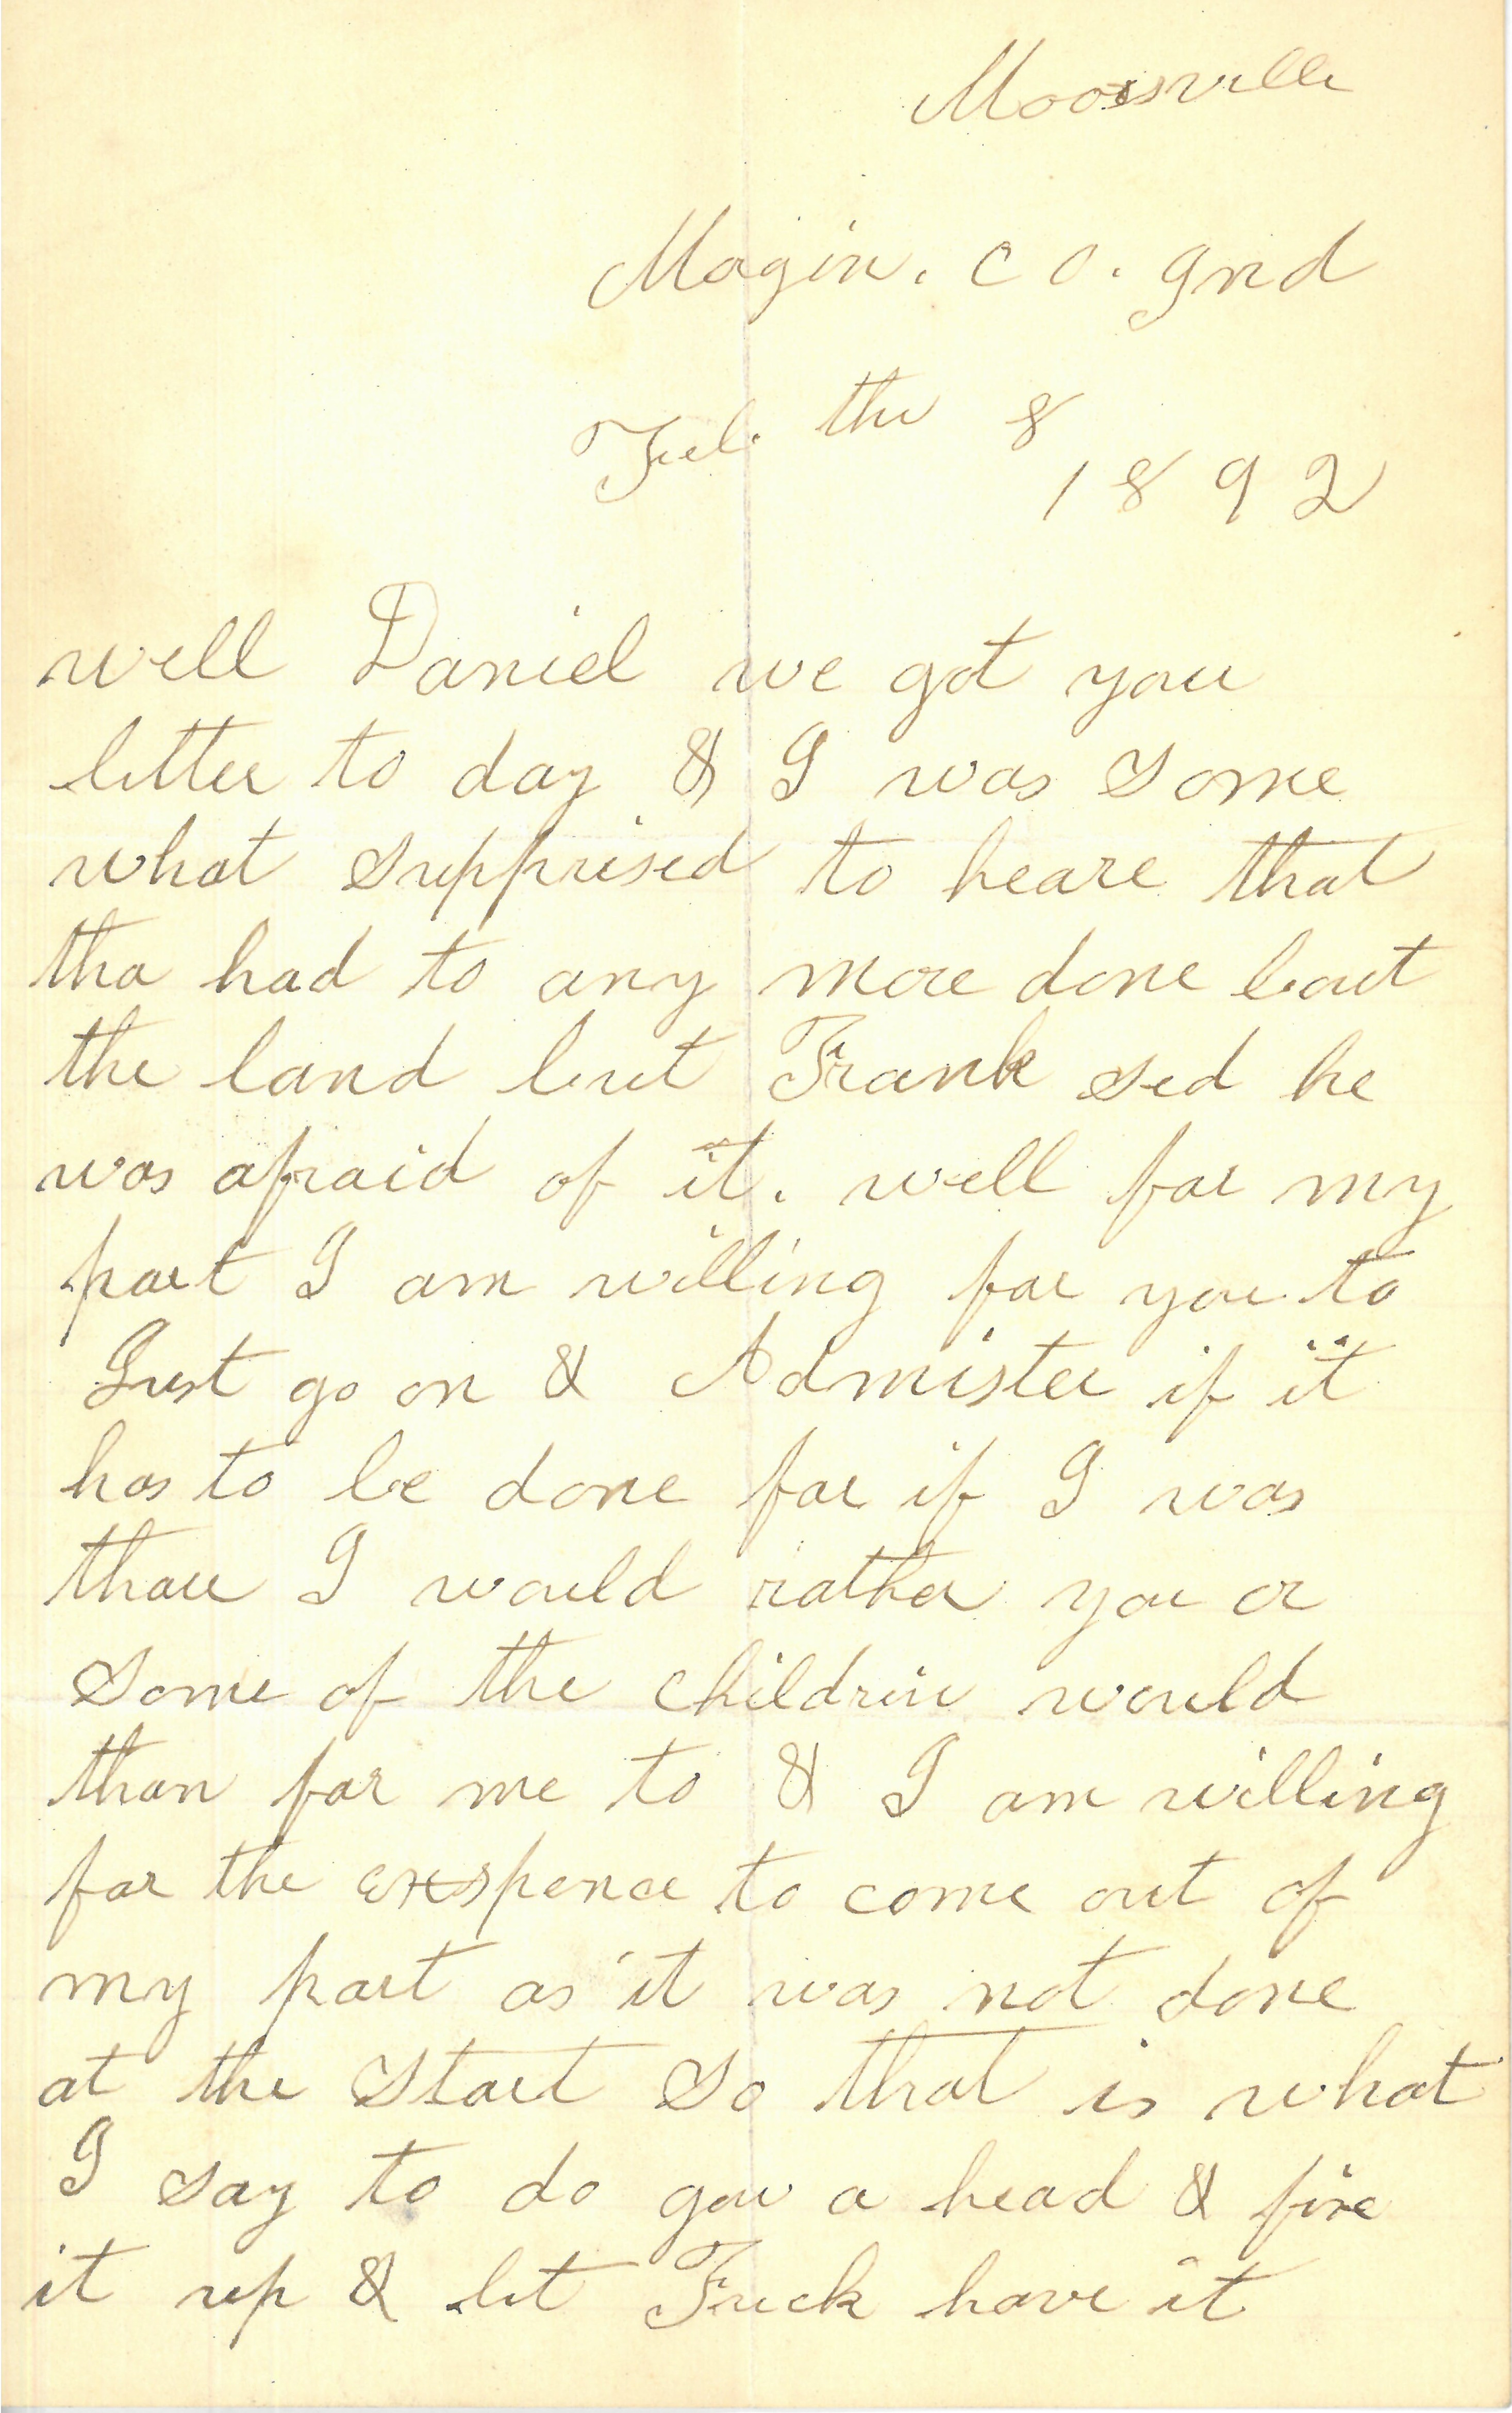 Moorsville
Magin. co. Ind
Feb. the 8
1892
well Daniel we got your
letter to day & I was some
what supprised to heare that
tha had to any more done bout
the land but Frank sed he
was afraid of it. well for my
part I am willing for you to
Just go on & Admister if it
has to be done for if I was
thare I would rather you or
some of the children would
than for me to & I am willing
for the exspence to come out of
my part as it was not done
at the start so that is what
I say to do gow a head & fixe
it up & let Frick have it